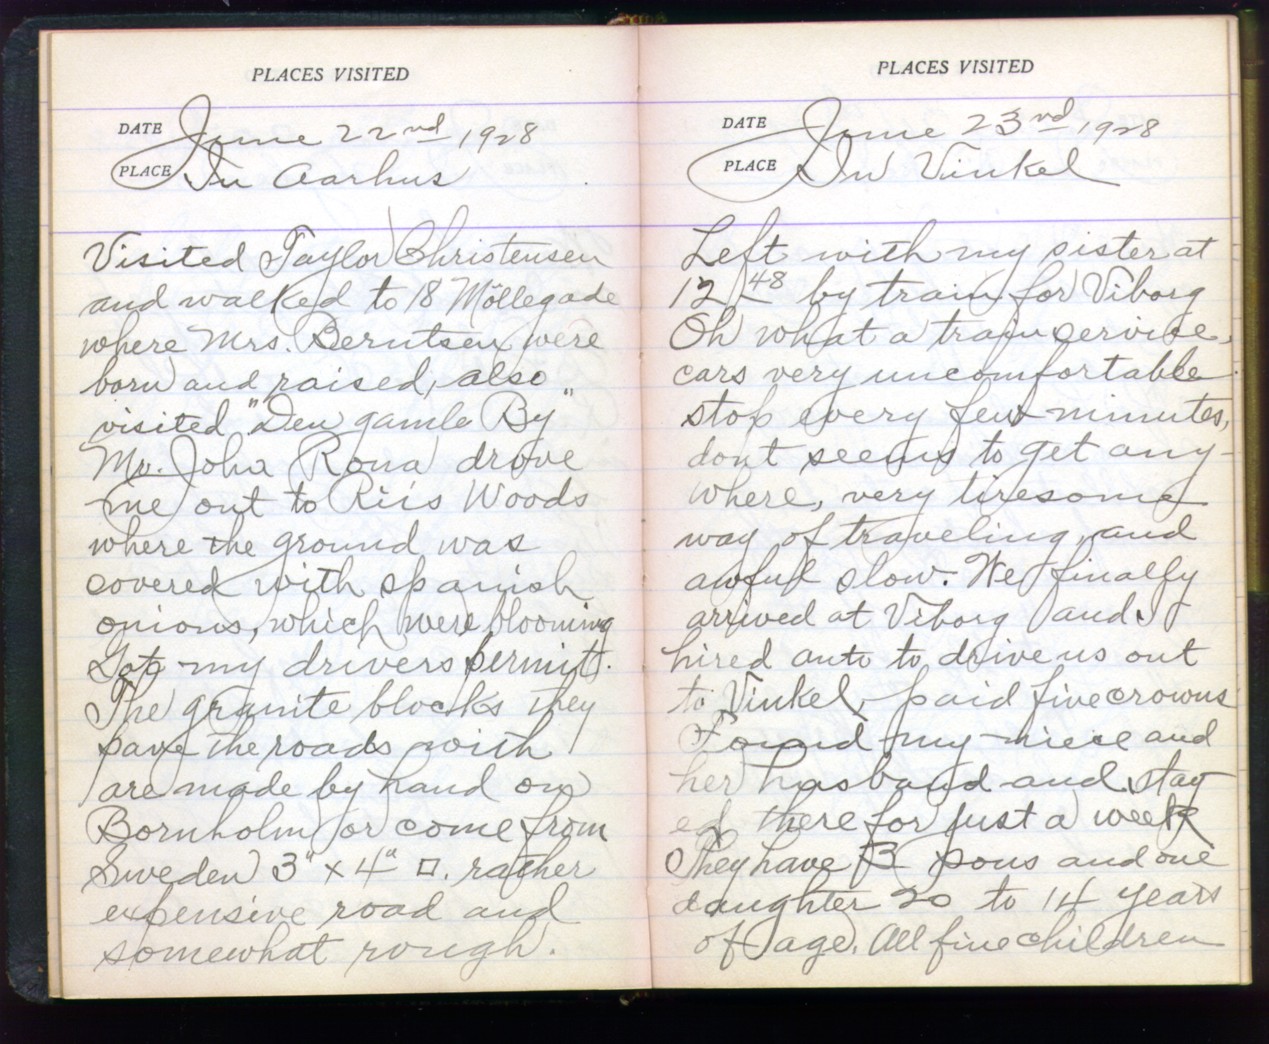 PLACES VISITED
DATE June 22nd 1928
PLACE In Aarhus
Visited Taylor Christensen
and walked to 18 Möllegade
where Mrs. Berntsen were
born and raised, also
visited "Den gamle By"
Mr. John Rona drove
me out to Riis Woods
where the ground was
covered with spanish
onions, which were blooming
Got my drivers permit.
The granite blocks they
pave the roads with
are made by hand on
Bornholm or come from
Sweden 3" x 4" □. rather
expensive road and
somewhat rough.
PLACES VISITED
DATE June 23rd 1928
PLACE In Vinkel
Left with my sister at
12 48 by train for Viborg
Oh what a train service,
cars very uncomfortable
stop every few minutes,
dont seems to get any-
where, very tiresome
way of traveling, and
awful slow. We finally
arrived at Viborg and
hired auto to drive us out
to Vinkel, paid five crowns
Found my niece and
her husband and stay
ed there for just a week
They have 3 sons and one
daughter 20 to 14 years
of age. All fine children